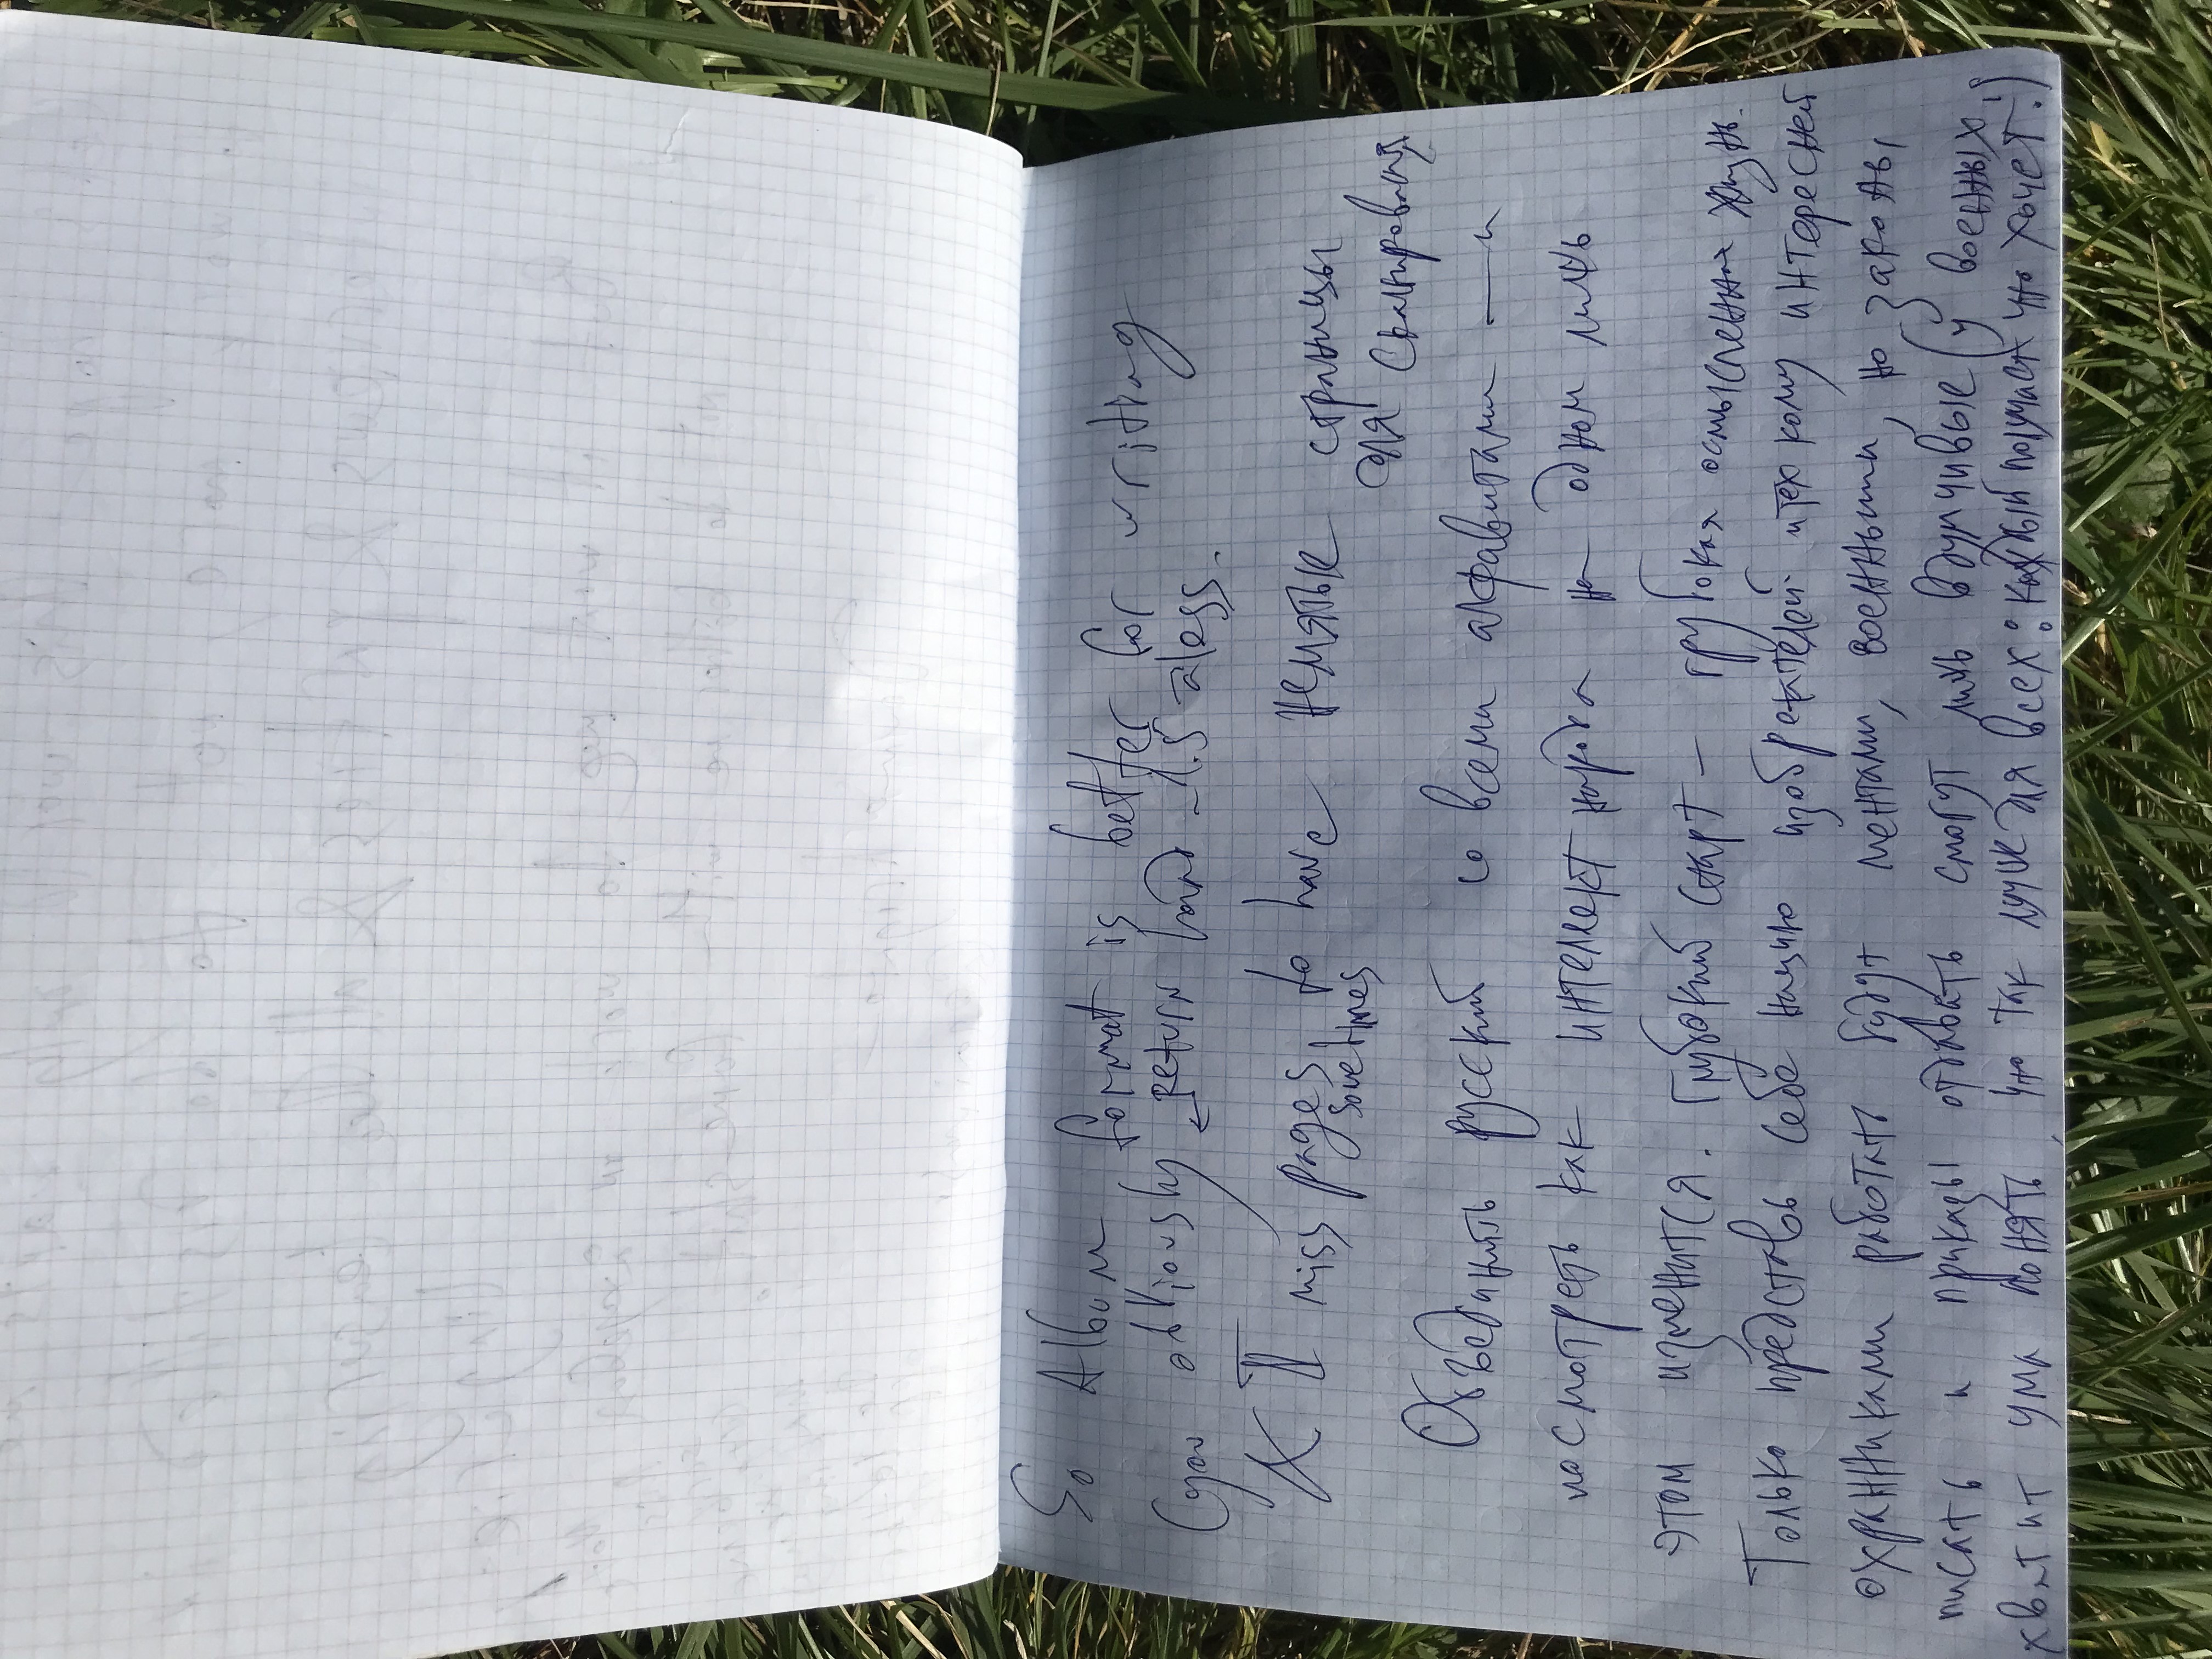 So Album format is better for writing
Cyan obviously ← Return found ~1.5 aless.
X I miss pages to have немятые страницы
sometimes для сканирования
Объединить русский со всеми алфавитами — и
посмотреть как интелект народа на одном лишь
этом изменится. Глубокий старт — глубокая осмысленная жизнь.
Только представь себе нацию изобретателей и тех кому интересней
охранниками работать будут ментами, военными, но законы
писать и приказы отдавать смогут лишь вдумчивые (у военных
хватит ума понять, что так лучше для всех: каждый получает что хочет!)